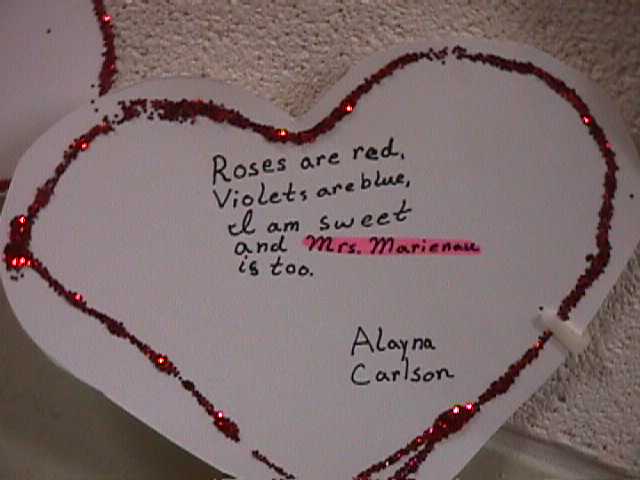 Roses are red,
Violets are blue,
I am sweet
and Mrs. Marienau
is too.
Alayna
Carlson